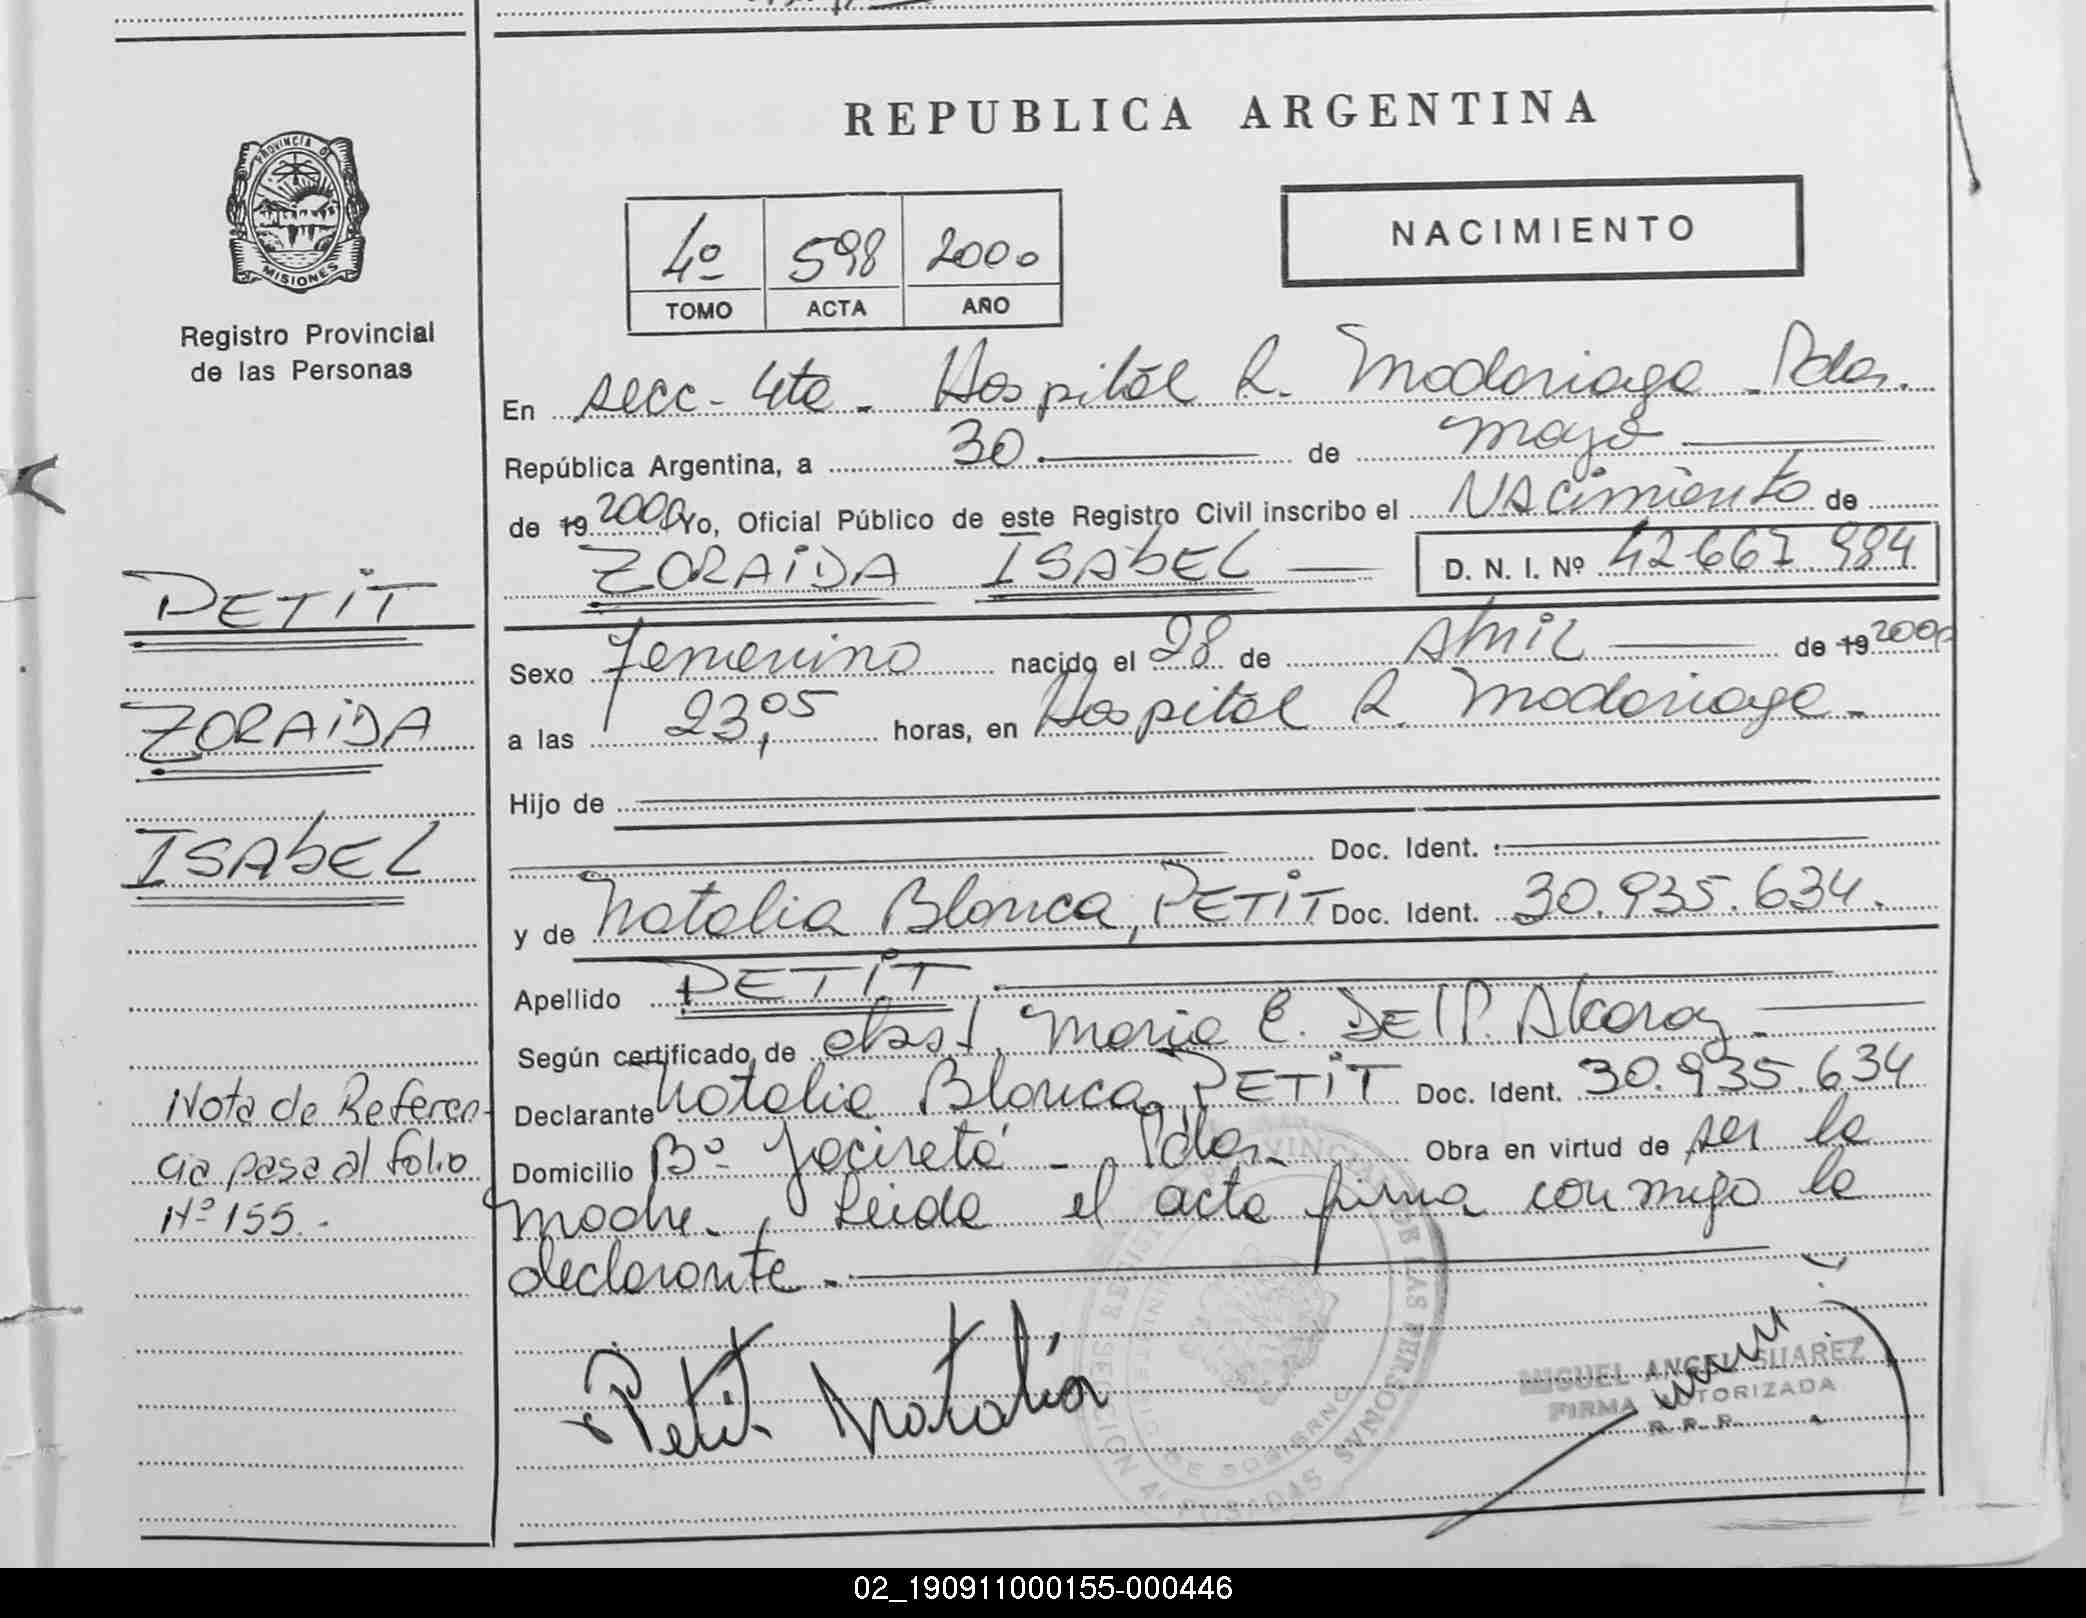 REPUBLICA ARGENTINA
PROVINCIA DE
MISIONES
Registro Provincial
de las Personas
4º 598 2000
TOMO ACTA AÑO
NACIMIENTO
En secc- 4ta - Hospital R. Madariaga - Pdas.
República Argentina, a 30 de mayo
de 19 2000 Yo, Oficial Público de este Registro Civil inscribo el NAcimiento de
ZORAiDA ISAbEL D. N. I. Nº 42.667.984
Sexo Femenino nacido el 28 de Abril de 19 2000
a las 23,05 horas, en Hospital R. Madariaga -
Hijo de
Doc. Ident. :
y de Natalia Blanca, PETiT Doc. Ident. 30.935.634.
Apellido PETiT
Según certificado de obst. Maria E. DEl P. Alcaraz -
Declarante Natalia Blanca PETiT Doc. Ident. 30.935.634
Domicilio Bº Yacireta - Pdas. Obra en virtud de ser la
madre. Leida el acta firma conmigo la
declarante -
PETiT
ZORAiDA
ISAbEL
Nota de Referen-
cia pasa al folio
Nº 155.-
Petit Natalia
MIGUEL ANGEL SUAREZ
FIRMA AUTORIZADA
R. P. P.
02_190911000155-000446